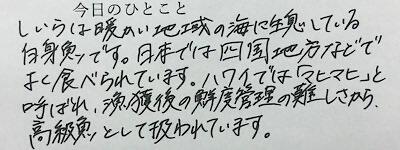 今日のひとこと
しいらは暖かい地域の海に生息している
白身魚です。日本では四国地方などで
よく食べられています。ハワイでは「マヒマヒ」と
呼ばれ、漁獲後の鮮度管理の難しさから、
高級魚として扱われています。